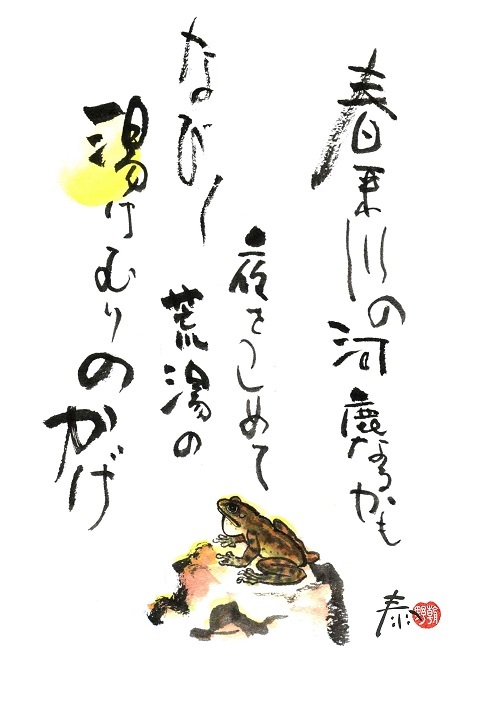 春来川の河鹿なるかも
夜をこめて
なびく
荒湯の
湯けむりのかげ
泰